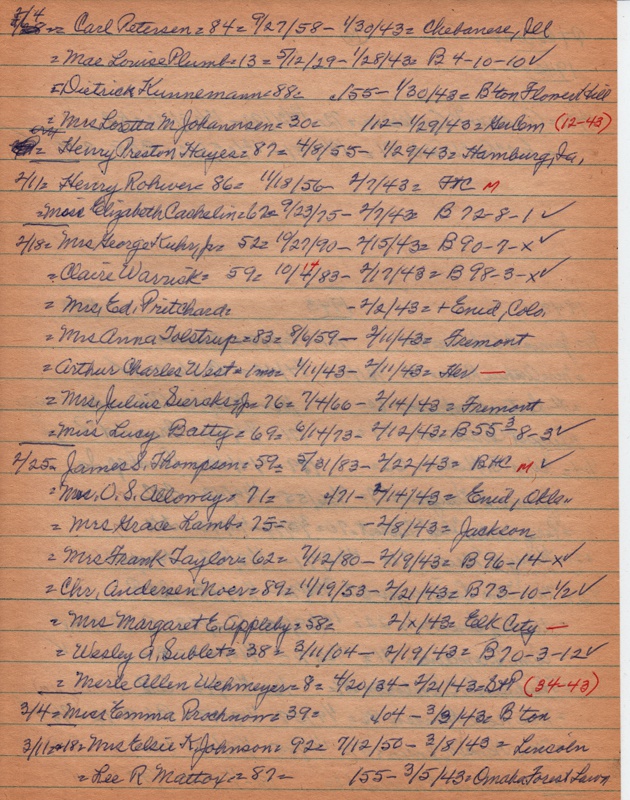 2/4 = Carl Petersen = 84 = 9/27/58 - 1/30/43 = Chebanese, Ill
= Mae Louise Plumb = 13 = 5/12/29 - 1/28/43 = B 4-10-10 ✓
= Dietrick Kunnemann = 88 = /55 - 1/30/43 = B'ton Flower Hill
= Mrs Loretta M Johannsen = 30 = /12 - 1/29/43 = HerCem (12-43)
= Henry Preston Hayes = 87 = 4/8/55 - 1/29/43 = Hamburg, Ia,
2/11 = Henry Rohwer = 86 = 11/18/56 - 2/7/43 = FtC M
= Miss Elizabeth Cachelin = 67 = 9/23/75 - 2/7/43 = B 72-8-1 ✓
2/18 = Mrs George Kuhr, Jr = 52 = 10/27/90 - 2/15/43 = B 90-7-X ✓
= Claire Warrick = 59 = 10/14/83 - 2/17/43 = B 98-3-X ✓
= Mrs, Ed, Pritchard = - 2/2/43 = + Enid, Colo.
= Mrs Anna Tolstrup = 83 = 8/6/59 - 2/11/43 = Fremont
= Arthur Charles West = 1 mo = 1/11/43 - 2/11/43 = Her —
= Mrs, Julius Siercks, Jr = 76 = 7/4/66 - 2/14/43 = Fremont
= Miss Lucy Batty = 69 = 6/14/73 - 2/12/43 = B 55-8-3 ✓
2/25 = James S. Thompson = 59 = 5/31/83 - 2/22/43 = BHC M ✓
= Mrs. O. S. Alloway = 71 = /71 - 2/14/43 = Enid, Okla.
= Mrs Grace Lamb = 75 = - 2/8/43 = Jackson
= Mrs Frank Taylor = 62 = 7/12/80 - 2/19/43 = B 96-14-X ✓
= Chr, Andersen Noer = 89 = 11/19/53 - 2/21/43 = B 73-10-1/2 ✓
= Mrs Margaret E, Appleby = 58 = 2/x/43 = Elk City —
= Wesley A, Sublet = 38 = 3/11/04 - 2/19/43 = B 70-3-12 ✓
= Merle Allen Wehmeyer = 8 = 4/20/34 - 2/21/43 = StP (34-43)
3/4 = Miss Emma Prochnow = 39 = /04 - 3/3/43 = B'ton
3/11 = 18 = Mrs Elsie K, Johnson = 92 = 7/12/50 - 3/8/43 = Lincoln
= Lee R Mattox = 87 = /55 - 3/5/43 = Omaha Forest Lawn